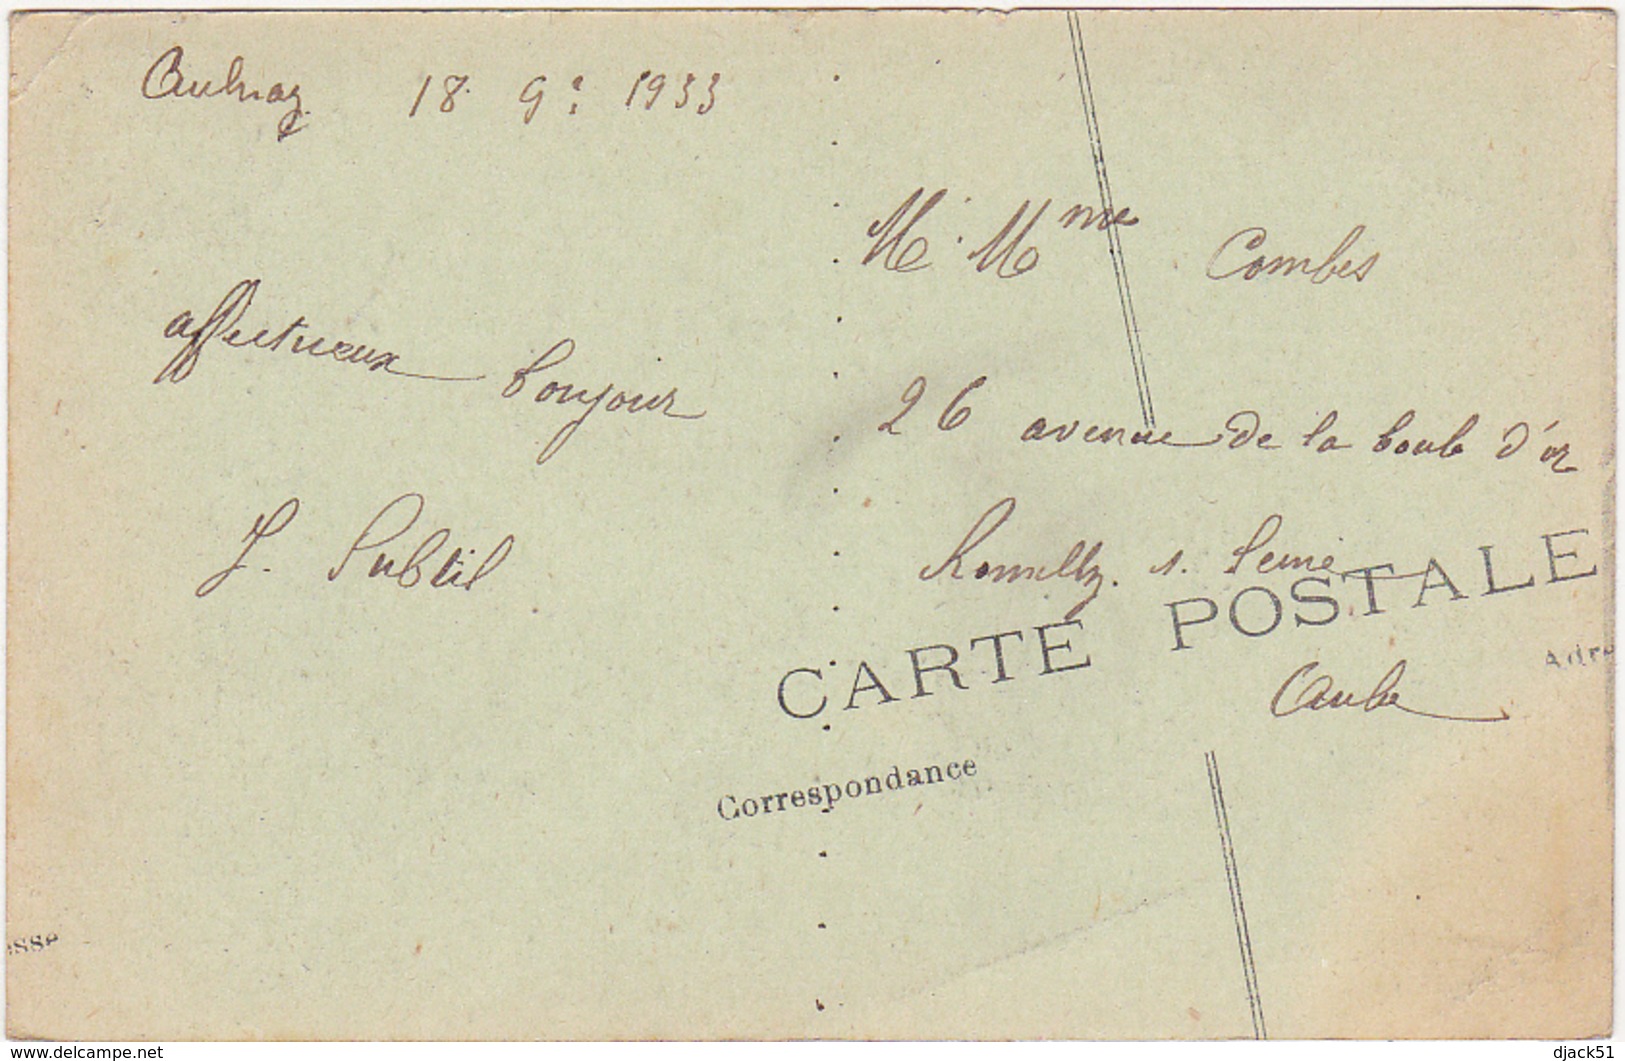 Aulnay 18 9? 1933
M. Mme Combes
affectueux bonjour
26 avenue de la boule d'or
J. Subtil
Romilly s. Seine
CARTE POSTALE
Adre
Aube
Correspondance
esse
www.delcampe.net
djack51